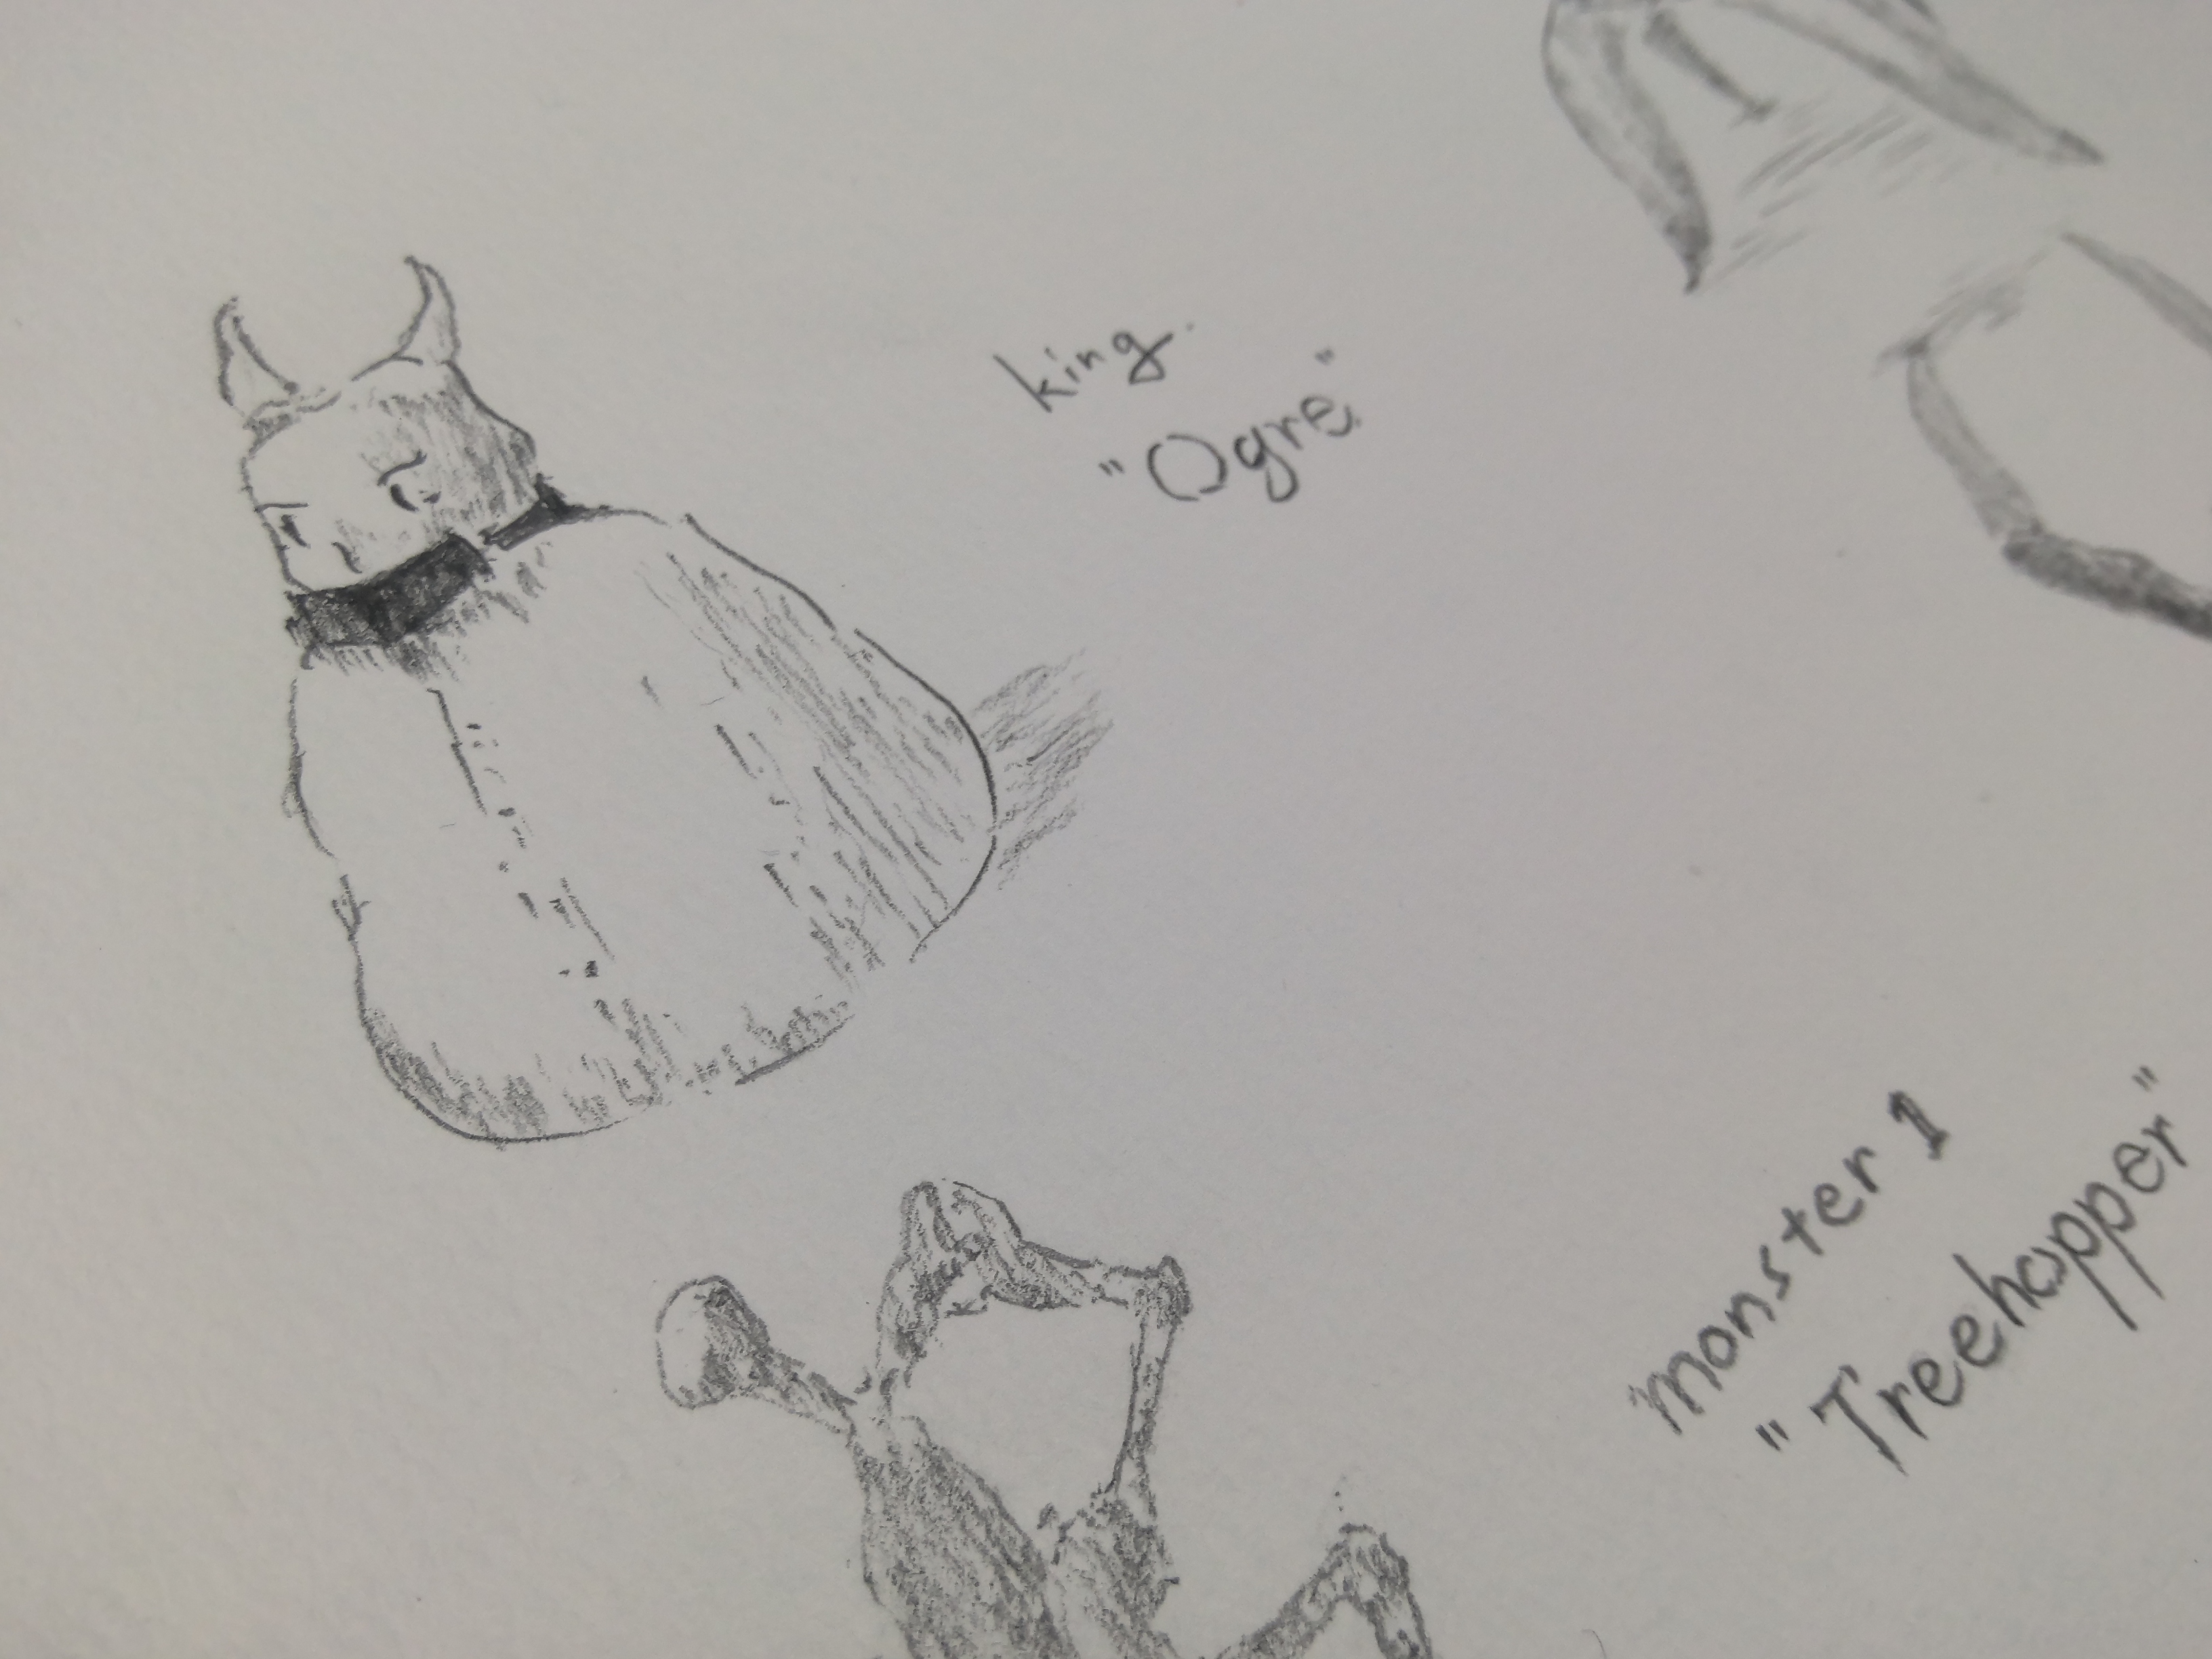 king.
"Ogre"
monster 1
"Treehopper"